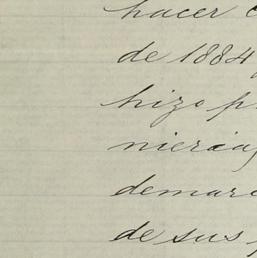 hacer
de 1884
hizo p
nierca
demar
de sus